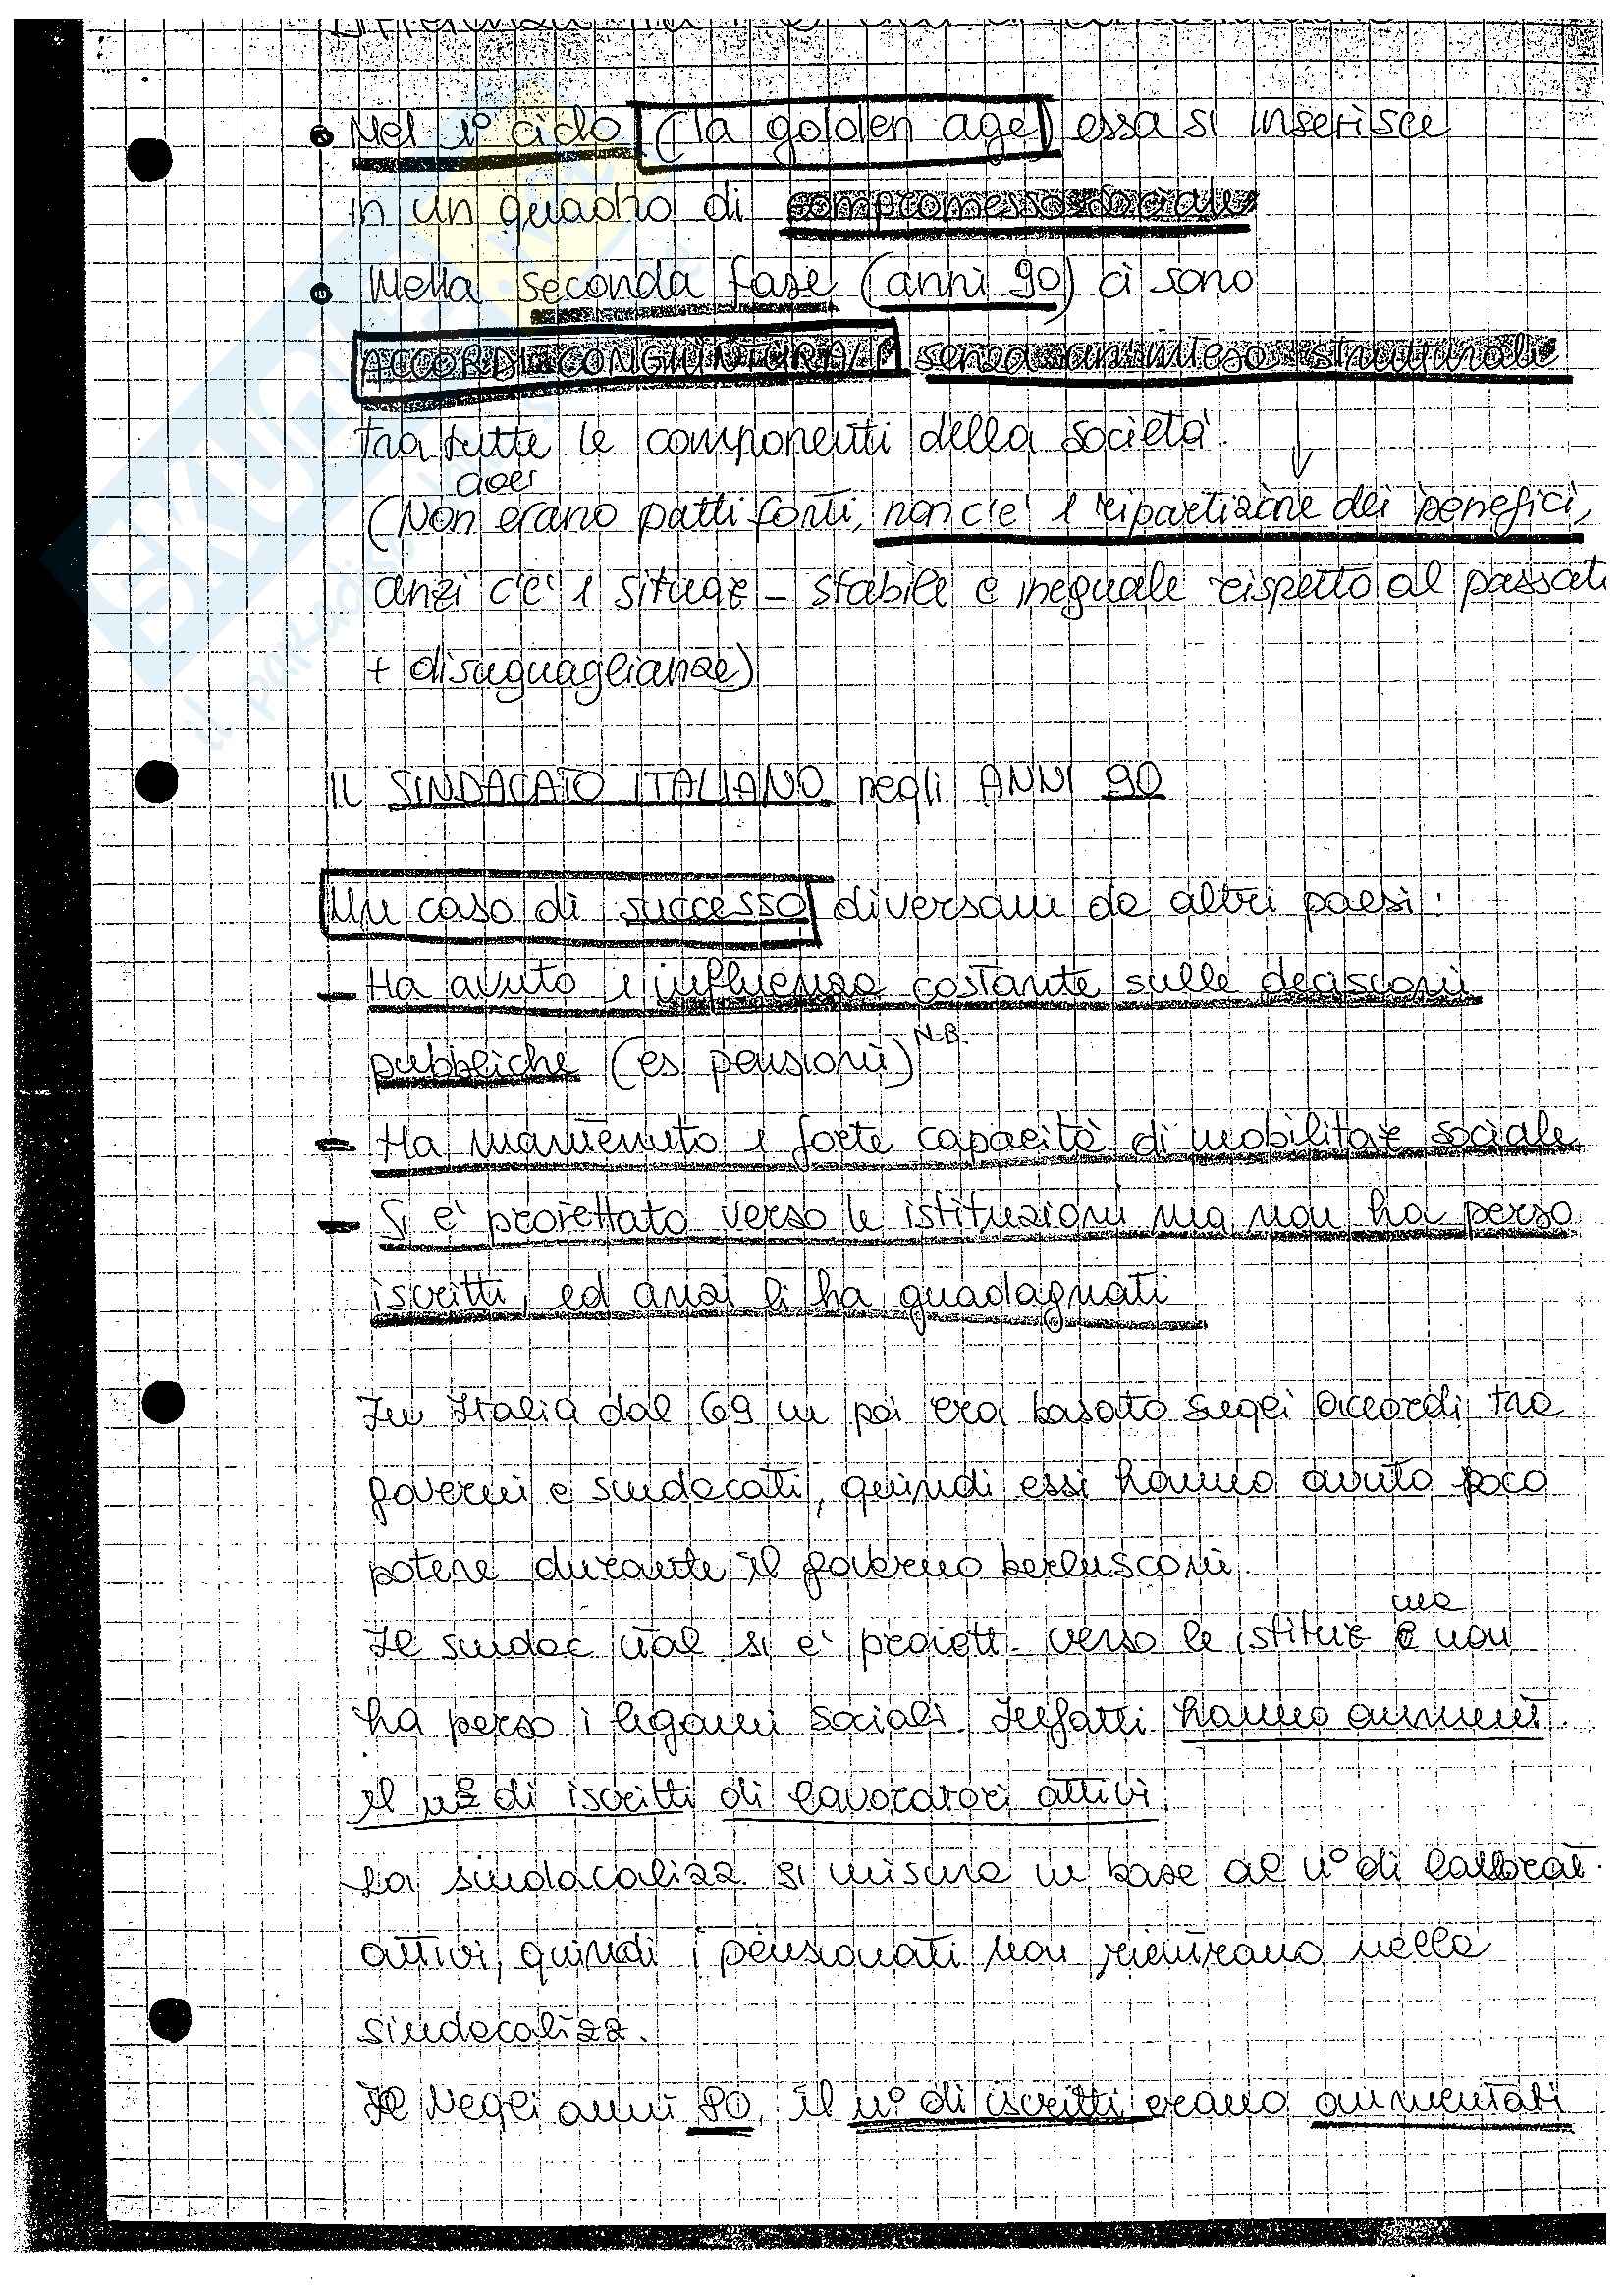 • Nel 1° ciclo (la golden age) essa si inserisce
in un quadro di compromesso sociale
• Nella seconda fase (anni 90) ci sono
ACCORDI CONGIUNTURALI senza un'intesa strutturale
tra tutte le componenti della società.
cioè
(Non erano patti forti, non c'e' 1 ripartizione dei benefici,
anzi c'e' 1 situaz - stabile e ineguale rispetto al passato
+ disuguaglianze)
IL SINDACATO ITALIANO negli ANNI 90
Un caso di successo diversam da altri paesi:
- Ha avuto 1 influenza costante sulle decisioni
pubbliche (es pensioni) N.B.
- Ha mantenuto 1 forte capacità di mobilitaz sociale
- Si e' proiettato verso le istituzioni ma non ha perso
iscritti, ed anzi li ha guadagnati
In Italia dal 69 in poi era basato sugli accordi tra
governi e sindacati, quindi essi hanno avuto poco
potere durante il governo berlusconi.
ma
Il sindac ital si e' proiett. verso le istituz e non
ha perso i legami sociali. Infatti hanno aument.
il n° di iscritti di lavoratori attivi.
La sindacalizz. si misura in base al n° di lavorat.
attivi, quindi i pensionati non rientrano nella
sindacalizz.
Il Negli anni 80, il n° di iscritti erano aumentati